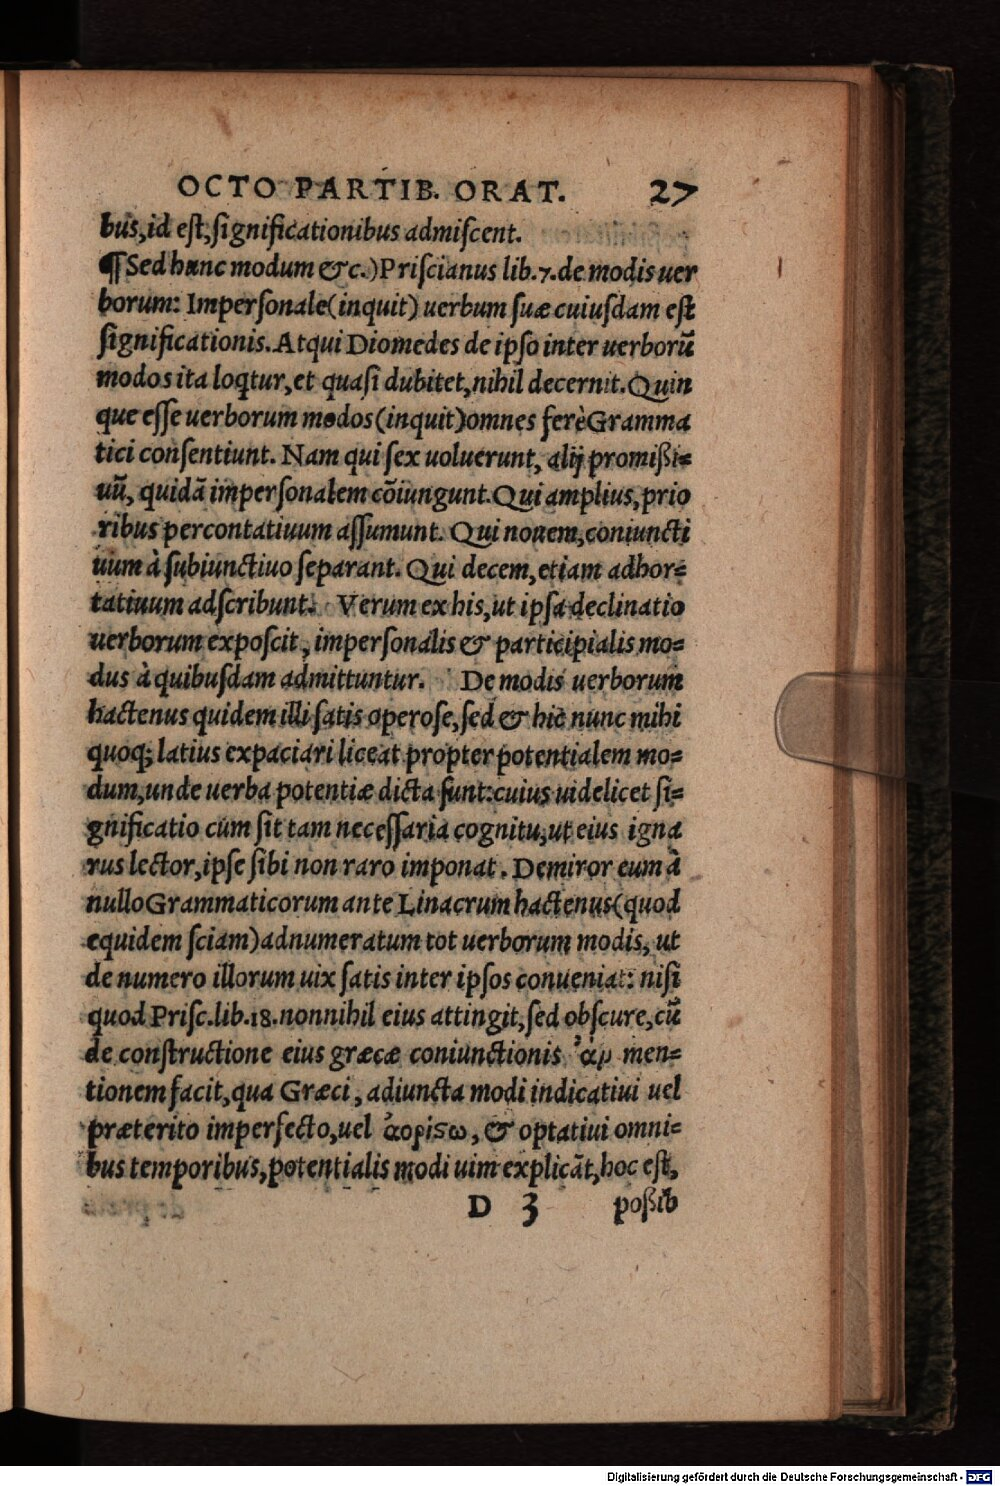 OCTO PARTIB. ORAT. 27
bus, id eſt, ſignificationibus admiſcent.
¶ Sed hunc modum &c.) Priſcianus lib. 7. de modis uer
borum: Imperſonale (inquit) uerbum ſuæ cuiuſdam eſt
ſignificationis. Atqui Diomedes de ipſo inter uerborū
modos ita loqtur, et quaſi dubitet, nihil decernit. Quin
que eſſe uerborum modos (inquit) omnes ferè Gramma
tici conſentiunt. Nam qui ſex uoluerunt, alij promißi⸗
uū, quidā imperſonalem cōiungunt. Qui amplius, prio
ribus percontatiuum aſſumunt. Qui nouem, coniuncti
uum à ſubiunctiuo ſeparant. Qui decem, etiam adhor⸗
tatiuum adſcribunt. Verum ex his, ut ipſa declinatio
uerborum expoſcit, imperſonalis & participialis mo⸗
dus à quibuſdam admittuntur. De modis uerborum
hactenus quidem illi ſatis operoſe, ſed & hic nunc mihi
quoq; latius expaciari liceat propter potentialem mo⸗
dum, unde uerba potentiæ dicta ſunt: cuius uidelicet ſi⸗
gnificatio cum ſit tam neceſſaria cognitu, ut eius igna
rus lector, ipſe ſibi non raro imponat. Demiror eum à
nullo Grammaticorum ante Linacrum hactenus (quod
equidem ſciam) adnumeratum tot uerborum modis, ut
de numero illorum uix ſatis inter ipſos conueniat: niſi
quod Priſc. lib. 18. nonnihil eius attingit, ſed obſcure, cū
de conſtructione eius græcæ coniunctionis ἀρ men⸗
tionem facit, qua Græci, adiuncta modi indicatiui uel
præterito imperfecto, uel ἀορίϛω, & optatiui omni⸗
bus temporibus, potentialis modi uim explicāt, hoc eſt,
D 3 poßib
Digitalisierung gefördert durch die Deutsche Forschungsgemeinschaft - DFG